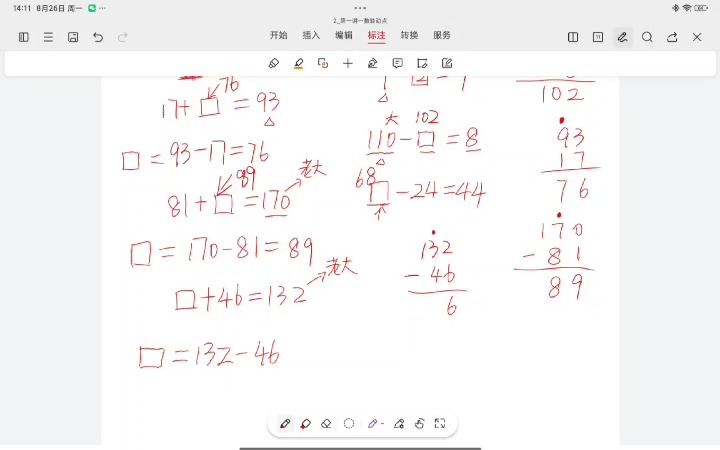 14:11 8月26日 周一
2_第一讲一数轴动点
开始 插入 编辑 标注 转换 服务
76
17+□=93
□=93-17=76
89
81+□=170 老大
□=170-81=89
□+46=132 老大
□=132-46
大 102
110-□=8
68
□-24=44
132
-46
6
102
93
17
76
170
-81
89